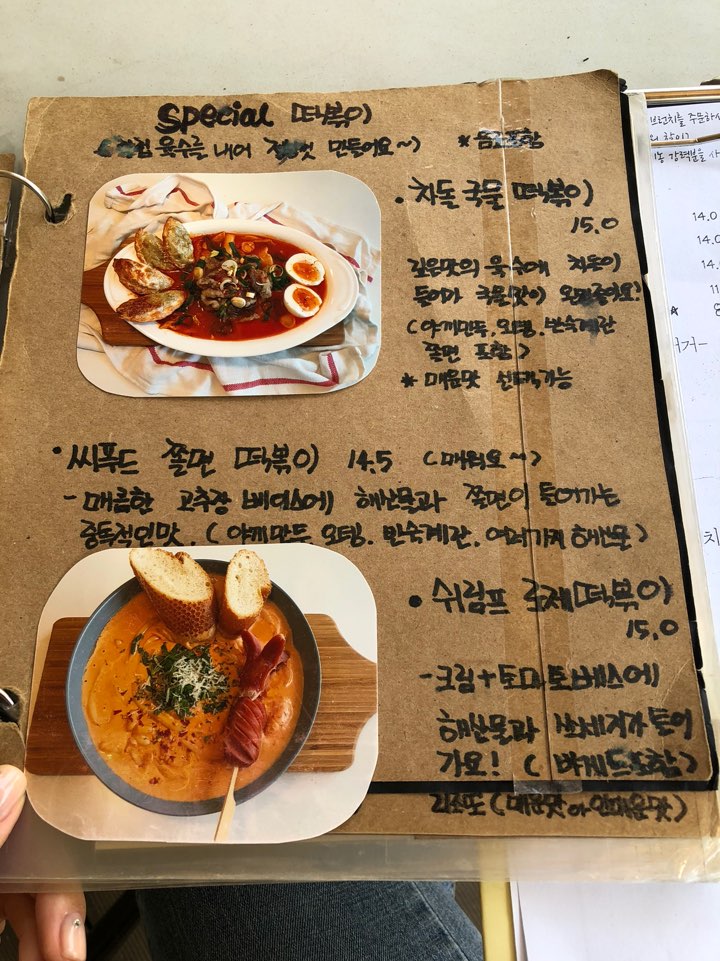 special 떡볶이
육수를 내어 만들어요~)
* 음료포함
• 차돌 국물 떡볶이
15.0
깊은맛의 육수에 차돌이
들어가 국물맛이 오일좋아요!
(야끼만두, 오뎅, 반숙계란
쫄면 포함)
* 매운맛 선택가능
• 씨푸드 쫄면 떡볶이 14.5 (매워요~)
- 매콤한 고추장 베이스에 해산물과 쫄면이 들어가는
중독적인맛. (야끼만두 오뎅. 반숙계란. 여러가지 해산물)
• 쉬림프 로제떡볶이
15.0
- 크림+토마토베이스에
해산물과 쏘세지가 들어
가요! (바게트포함)
(매운맛 or 안매운맛)
브런치를 주문하시
강력분을 사
14.0
14.0
14.
11